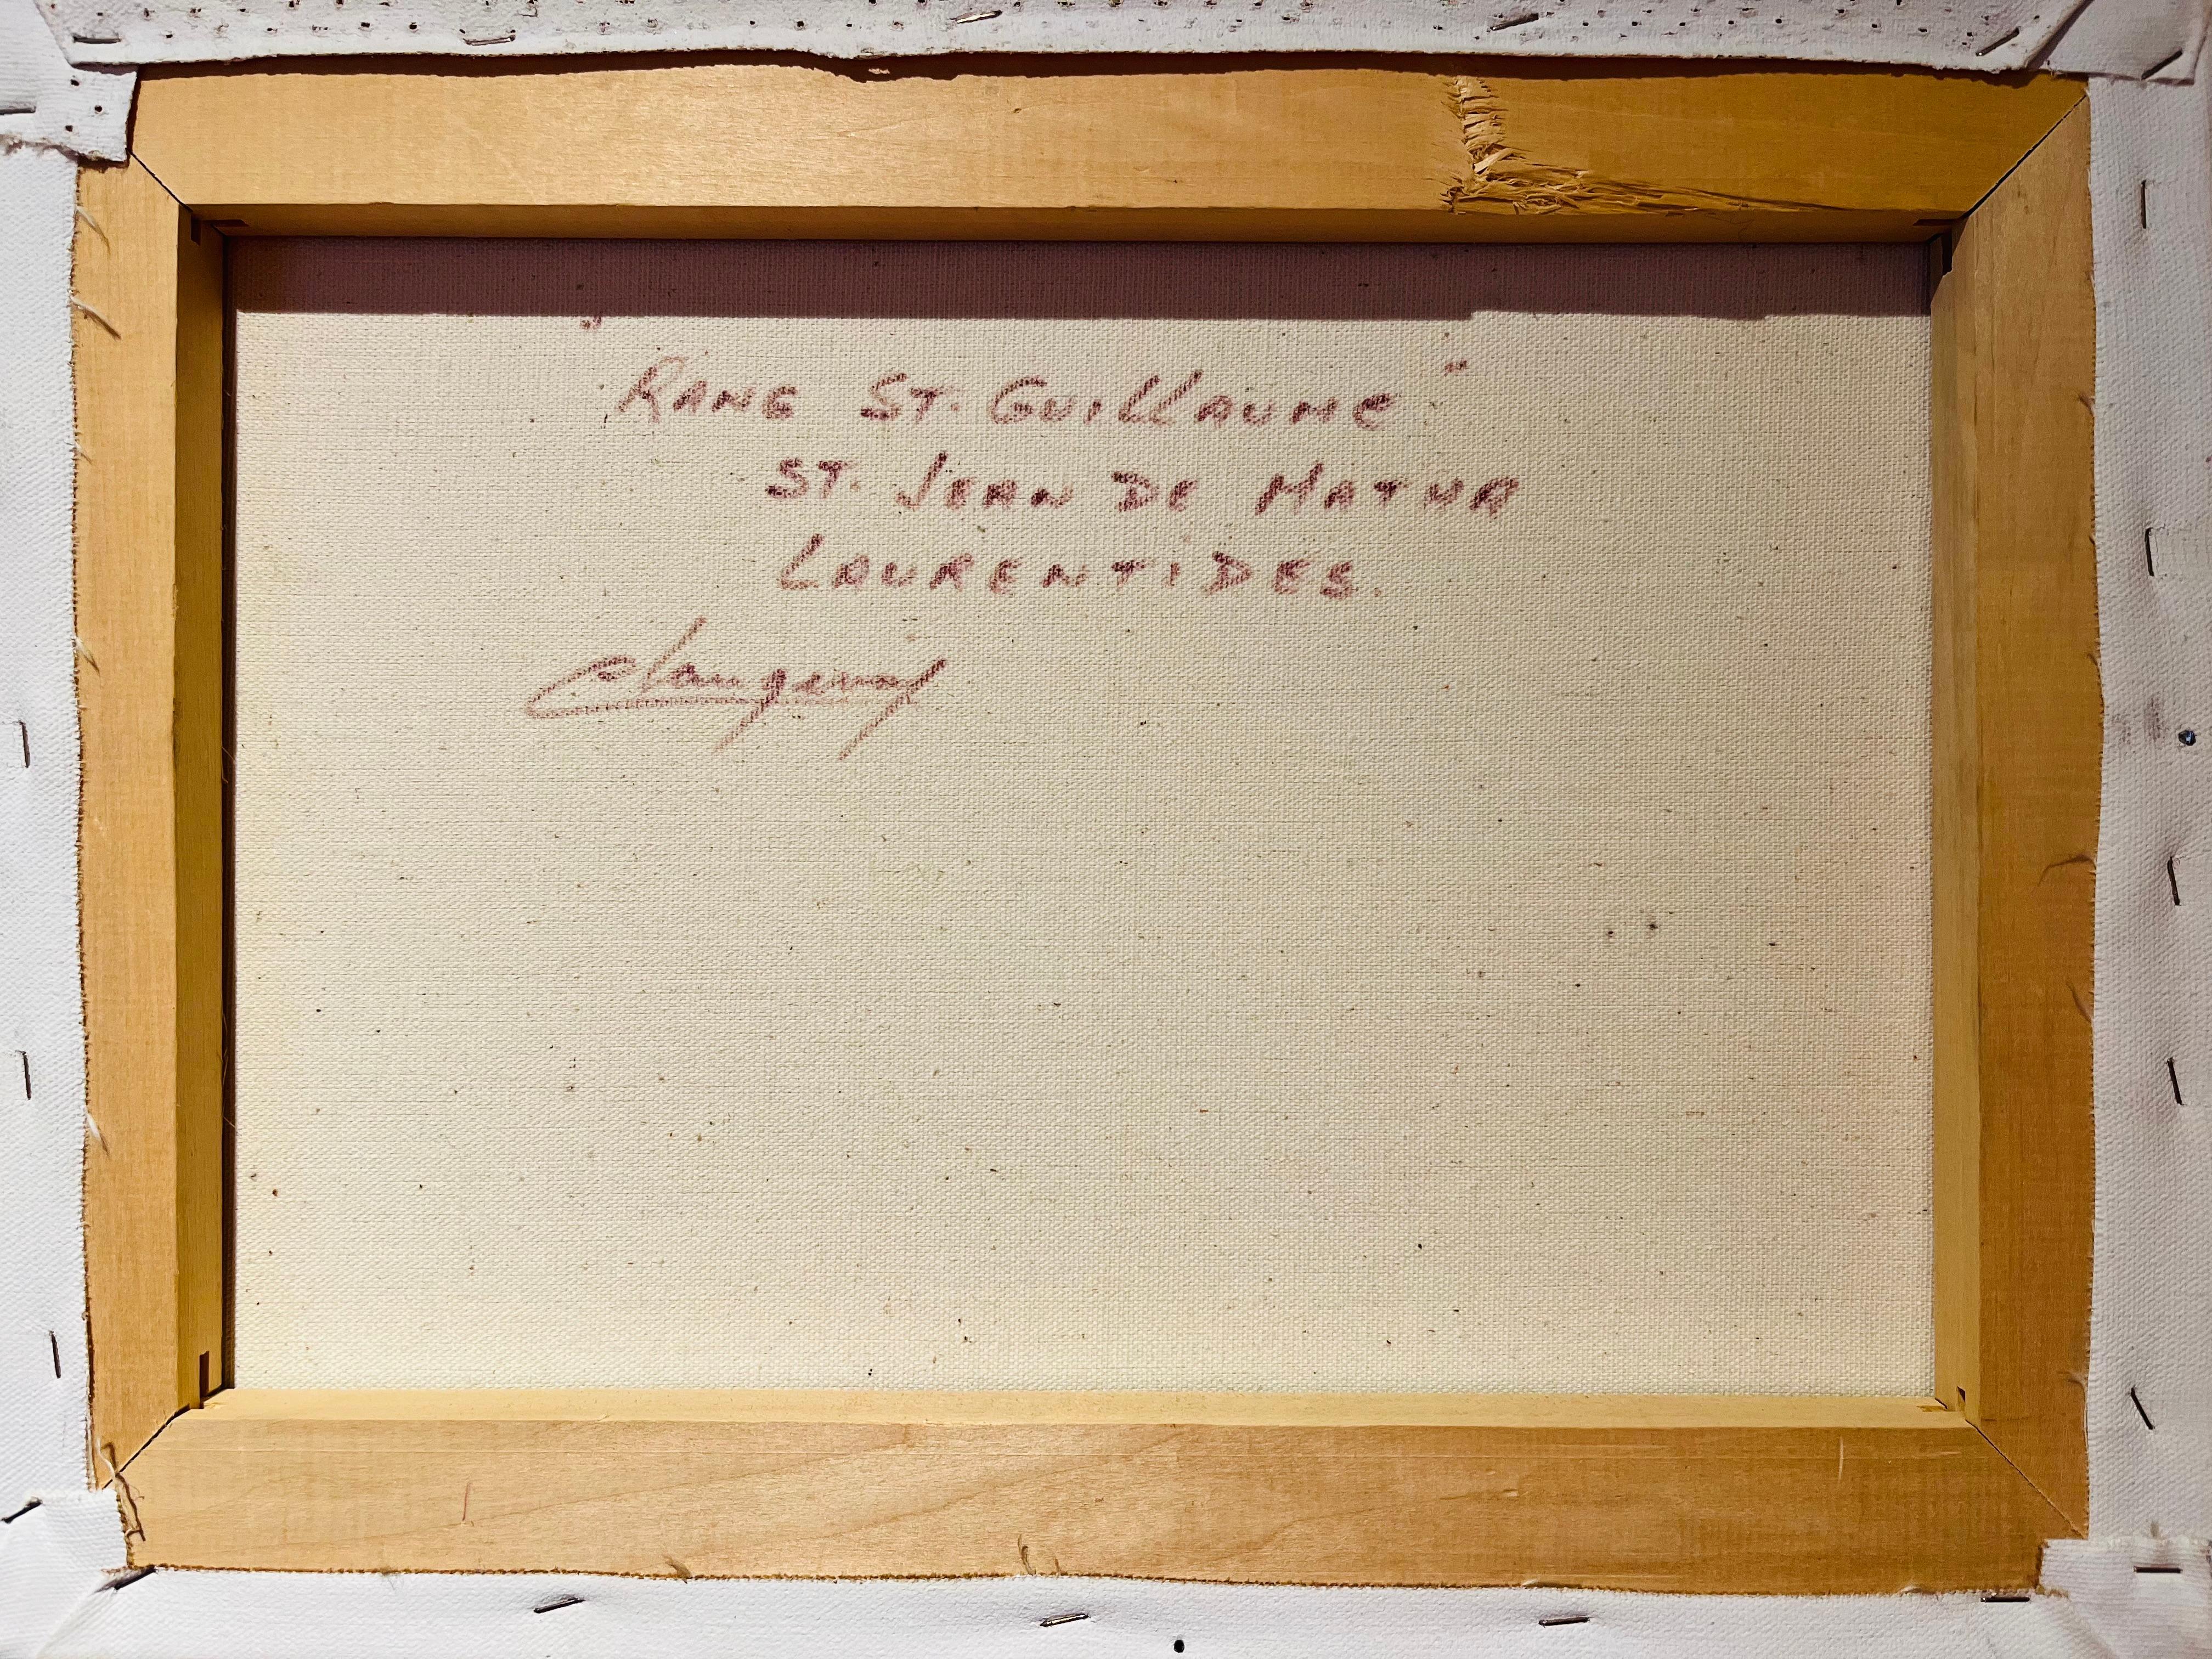 "Rang St. Guillaume"
St. Jean de Matha
Laurentides.